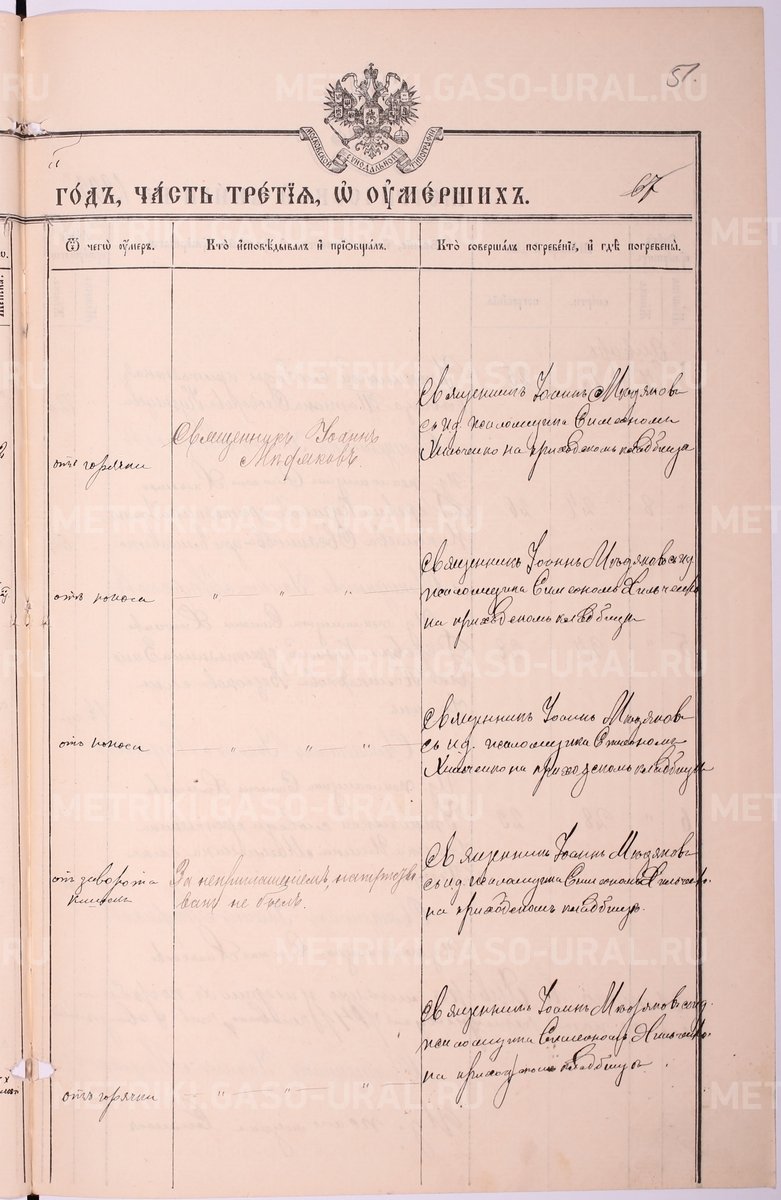 51.
МОСКОВСКОЙ СѴНОДАЛЬНОЙ ТИПОГРАФІИ
67
ГОДЪ, ЧАСТЬ ТРЕТІЯ, Ѡ ОУМЕРШИХЪ.
Ѿ чегѡ оумеръ.
Кто исповѣдывалъ и пріобщалъ.
Кто совершалъ погребеніе, и гдѣ погребены.
отъ горячки
Священникъ Іоаннъ
Священникъ Іоаннъ
съ и д. псаломщика Симеономъ
Хильченко на приходскомъ кладбищѣ
отъ поноса
" " "
Священникъ Іоаннъ
псаломщика Симеономъ Хильченко
на приходскомъ кладбищѣ
отъ поноса
" " "
Священникъ Іоаннъ
съ и д. псаломщика Симеономъ
Хильченко на приходскомъ кладбищѣ
отъ заворота
кишекъ
За неприглашеніемъ, напутство-
ванъ не былъ.
Священникъ Іоаннъ
съ и д. псаломщика Симеономъ Хильченко
на приходскомъ кладбищѣ.
отъ горячки
" " "
Священникъ Іоаннъ
псаломщика Симеономъ Хильченко
на приходскомъ кладбищѣ.
METRIKI.GASO-URAL.RU